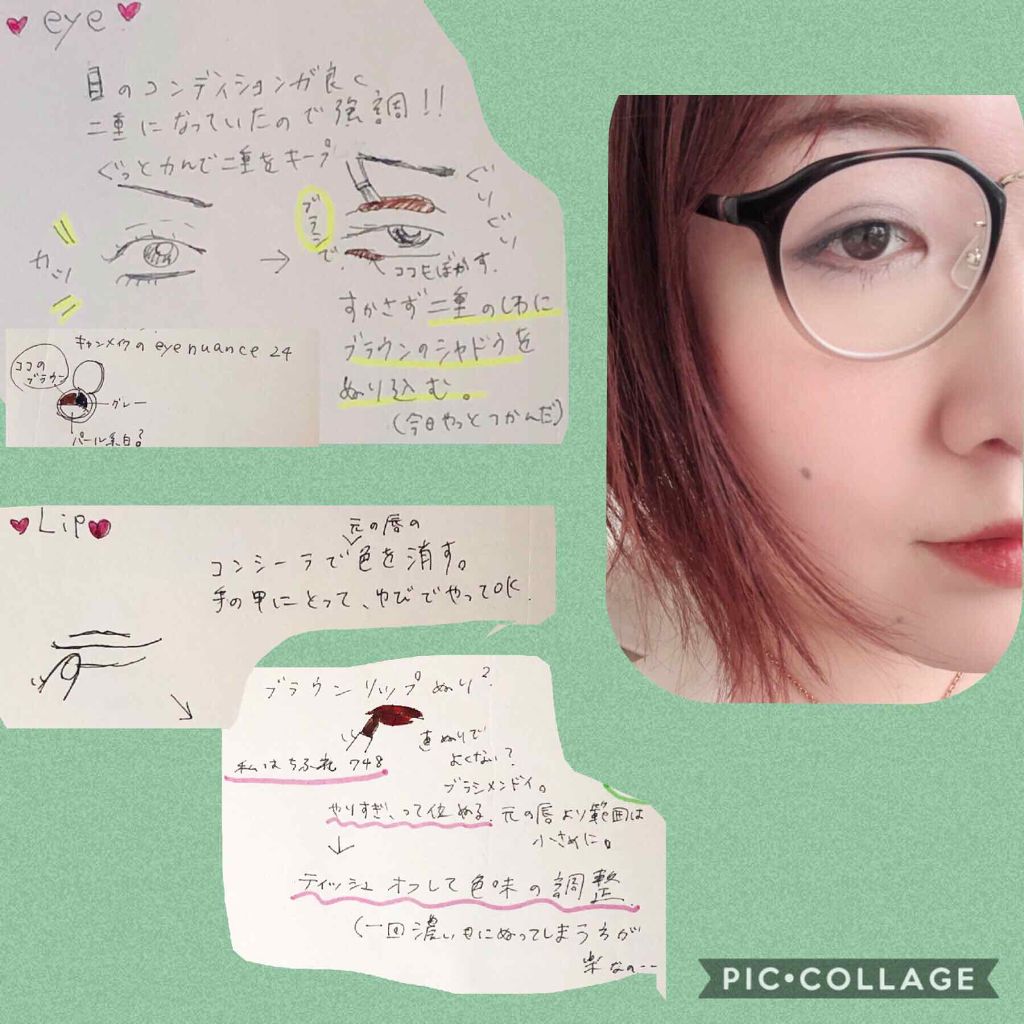 eye
目のコンディションが良く
二重になっていたので強調!!
ぐっと力んで二重をキープ
カッ
→
ブラウンで、
ぐりぐり
ココもぼかす。
すかさず二重のしわに
ブラウンのシャドウを
ぬり込む。
(今日やっとつかんだ)
キャンメイクのeyenuance 24
ココの
ブラウン
グレー
パール系白?
Lip
元の唇の
コンシーラで色を消す。
手の甲にとって、ゆびでやってOK.
ブラウンリップぬり²
直ぬりで
よくない?
ブラシメンドイ。
私はちふれ 748
やりすぎ、って位ぬる。元の唇より範囲は
小さめに。
ティッシュオフして色味の調整.
(一回濃いめにぬってしまう方が
楽なの--
PIC•COLLAGE